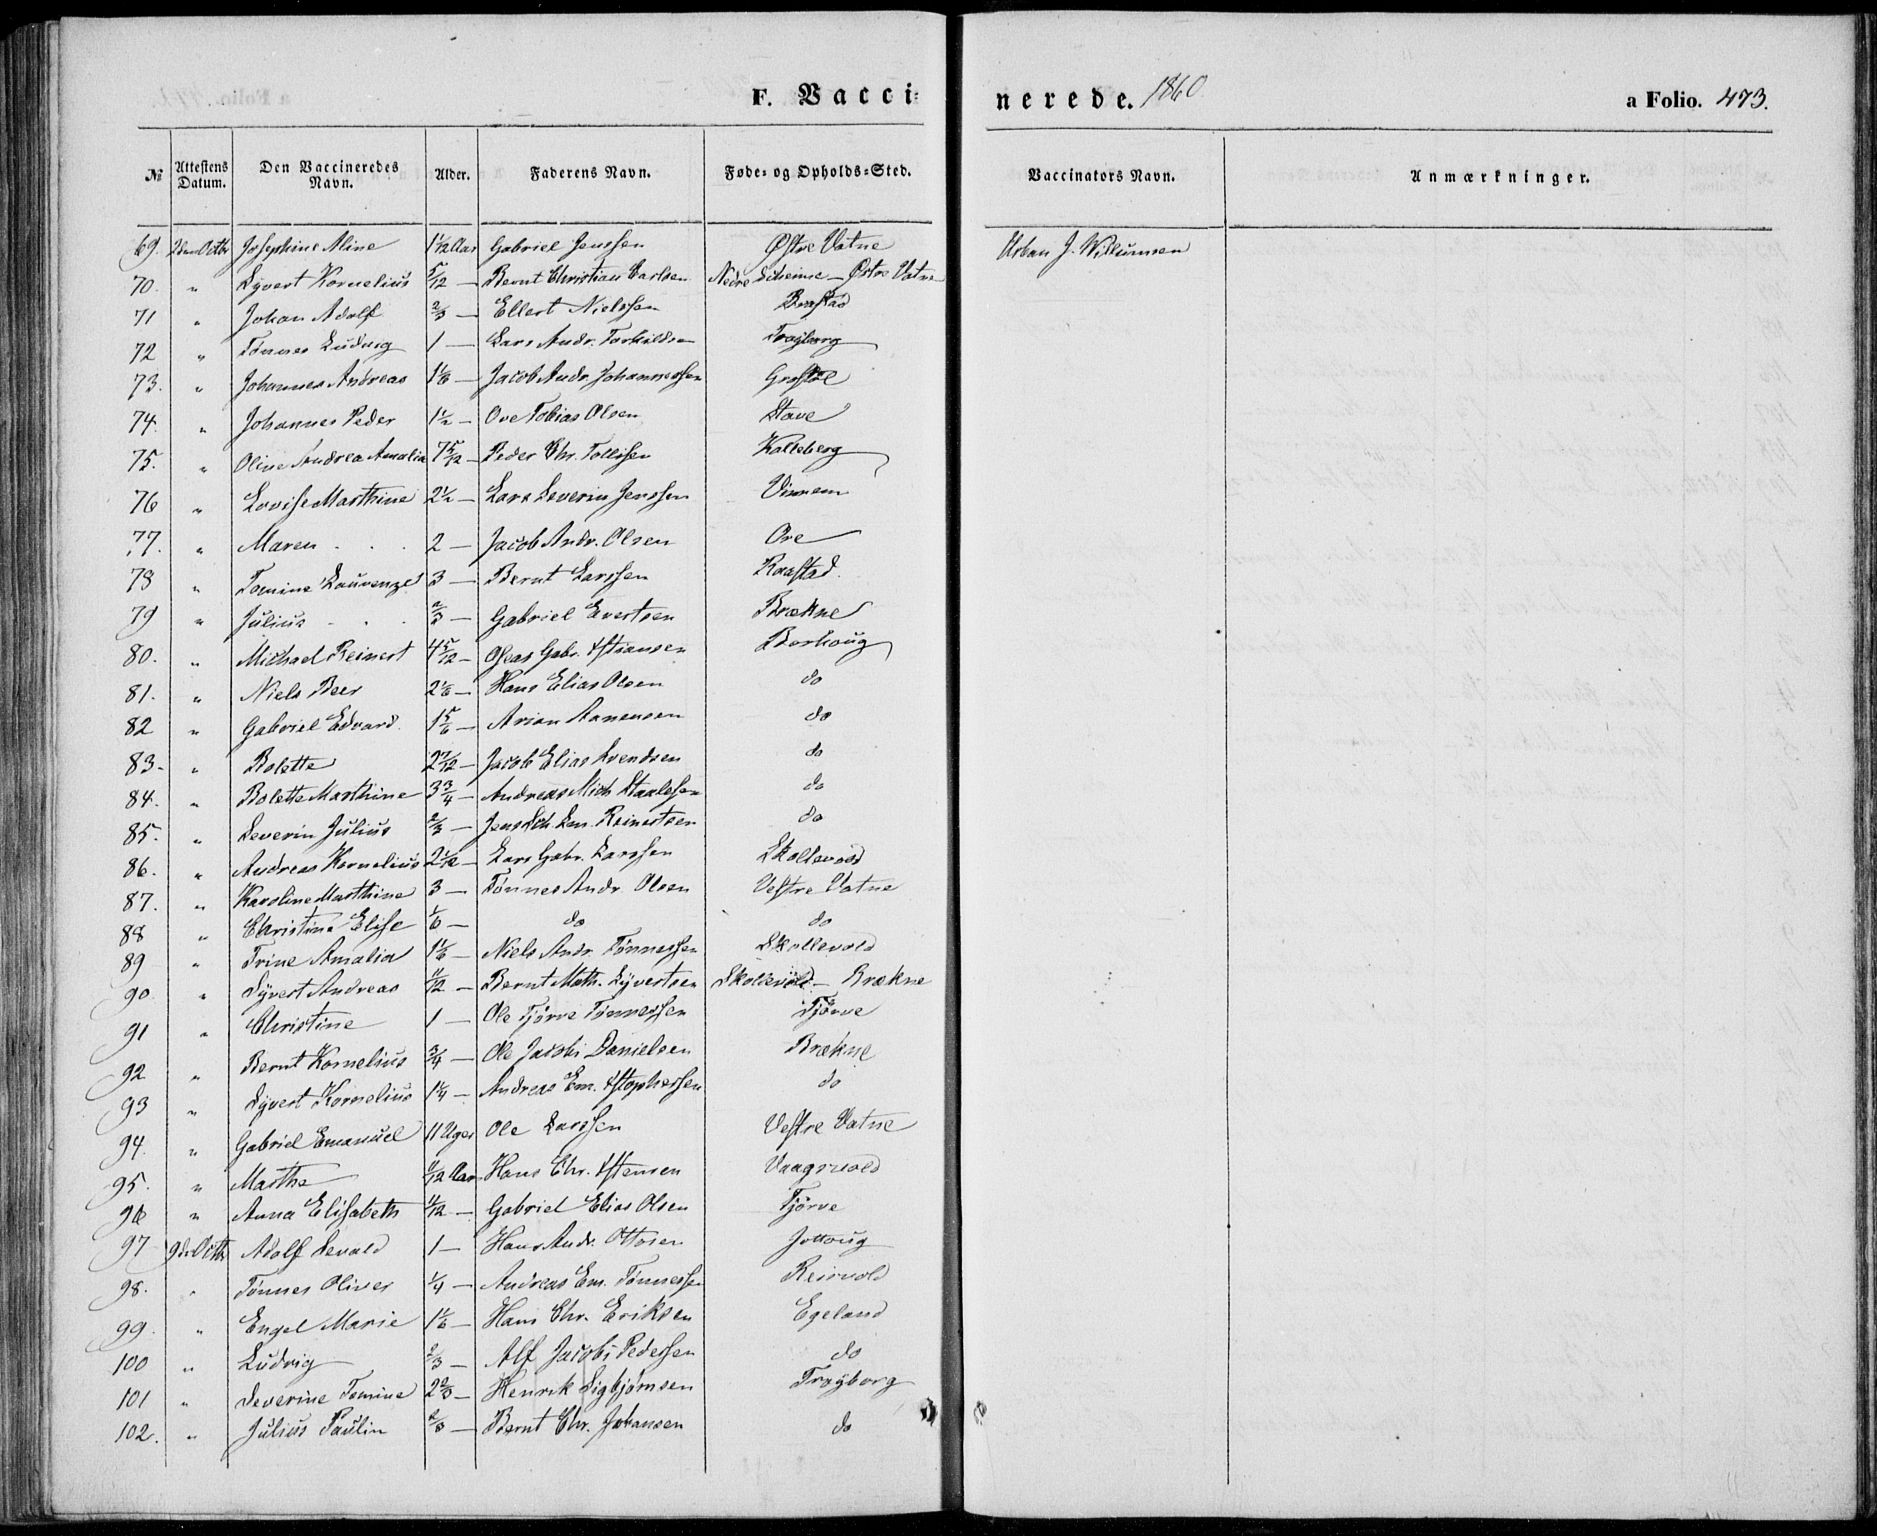 F. Vaccinerede. 1860
a Folio. 473.
№ Attestens Datum. Den Vaccineredes Navn. Alder. Faderens Navn. Føde- og Opholds-Sted. Vaccinators Navn. Anmærkninger.
69. 2den Octb Josephine Aline 1 1/12 Aar Gabriel Jenssen Østre Vatne Urban J. Willumsen
70. " Syvert Kornelius 5/12 — Bernt Christian Carlsen Nedre Scheime — Østre Vatne
71 " Johan Adolf 2/3 — Ellert Nielssen
72 " Tønnes Ludvig 1 — Lars Andr. Torkildsen Trøyborg
73. " Johannes Andreas 1 1/6 — Jacob Andr. Johannessen
74. " Johannes Peder 1 1/2 — Ove Tobias Olsen Stave
75. " Oline Andrea Amalia 7 5/12 — Peder Chr. Tollissen Kalleberg
76 " Lovise Marthine 2 1/2 — Lars Severin Jenssen Vinnem
77. " Maren . . . 2 — Jacob Andr. Olsen Ore
78 " Tomine Lauvenze 3 — Bernt Larssen Raastad.
79 " Julius . . . 2/3 — Gabriel Evertsen Brækne
80. " Michael Reinert 4 5/12 — Oseas Gabr. Xstiansen Borhoug
81. " Niels Beer 2 1/6 — Hans Elias Olsen do
82 " Gabriel Edvard. 1 5/6 — Arian Aanensen do
83 - " Bolette 2 7/12 — Jacob Elias Svendsen do
84. " Bolette Marthine 3 3/4 — Andreas Mich. Staalesen do
85. " Severin Julius 2/3 — Jens Sch. Em. Reinertsen do
86. " Andreas Kornelius 2 1/12 — Lars Gabr. Larssen Skollevold
87. " Karoline Marthine 3 — Tønnes Andr. Olsen Vestre Vatne
88 " Christine Elise 1/6 — do do
89 " Trine Amalia 1 1/6 — Niels Andr. Tønnessen Skollevold
90 " Syvert Andreas 11/12 — Bernt Math. Syvertsen Skollevold — Brækne
91 " Christine 1 — Ole Tjørve Tønnessen Tjørve
92 " Bernt Kornelius 3/4 — Ole Jacobi Danielsen Brækne
93 " Syvert Kornelius 1 1/4 — Andreas Em. Xstophersen do
94. " Gabriel Emanuel 11 Uger Ole Larssen Vestre Vatne
95. " Marthe /12 Aar Hans Chr. Xstensen Vaagsvold
96 " Anna Elisabeth 11/12 — Gabriel Elias Olsen Tjørve
97 9de Octb Adolf Sevald 1 — Hans Andr. Ottosen Jottoug
98. " Tønnes Oliver 1/4 — Andreas Em. Tønnessen Reirvold
99. " Engel Marie 1 1/6 — Hans Chr. Eriksen Egeland
100 " Ludvig 2/3 — Alf Jacobi Pedersen do
101 " Severine Tomine 2 2/3 — Henrik Sigbjørnsen Trøyborg
102. " Julius Paulin 2/3 — Bernt Chr. Johansen do